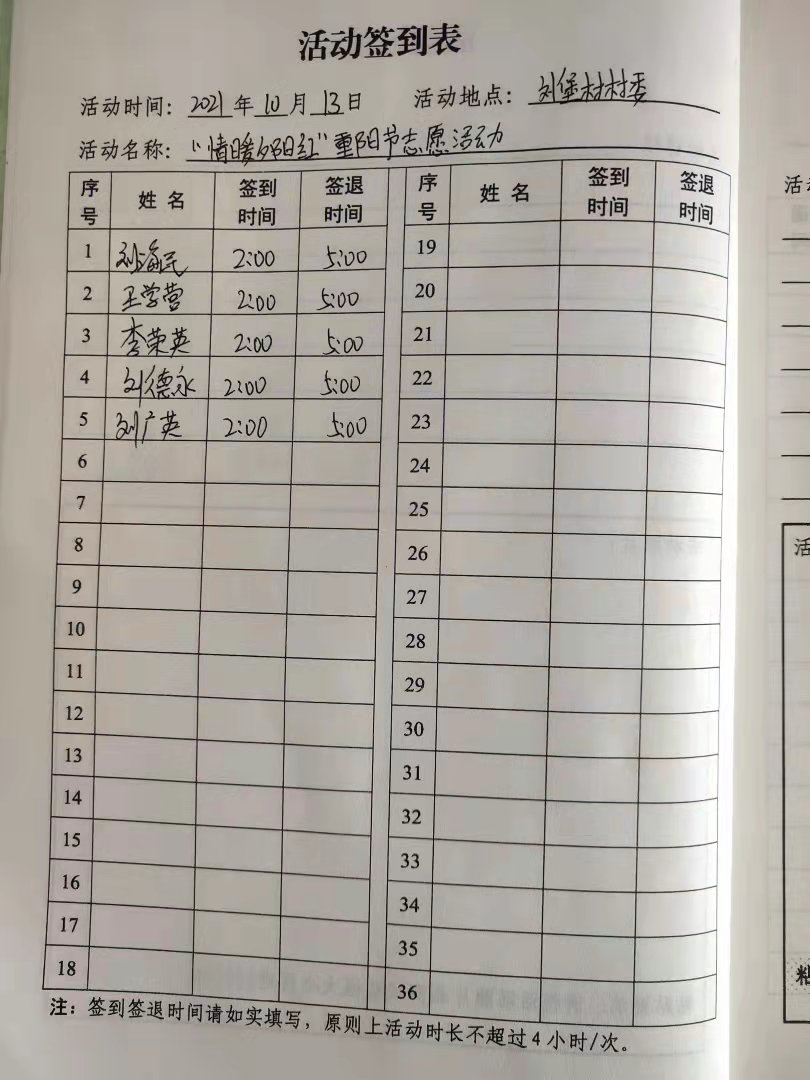 活动签到表
活动时间：2021年10月13日 活动地点：刘堡村村委
活动名称："情暖夕阳红"重阳节志愿活动
序号 姓名 签到时间 签退时间 序号 姓名 签到时间 签退时间
1 刘海民 2:00 5:00 19
2 王学营 2:00 5:00 20
3 李荣英 2:00 5:00 21
4 刘德永 2:00 5:00 22
5 刘广英 2:00 5:00 23
6 24
7 25
8 26
9 27
10 28
11 29
12 30
13 31
14 32
15 33
16 34
17 35
18 36
注：签到签退时间请如实填写，原则上活动时长不超过4小时/次。
活
活
粘